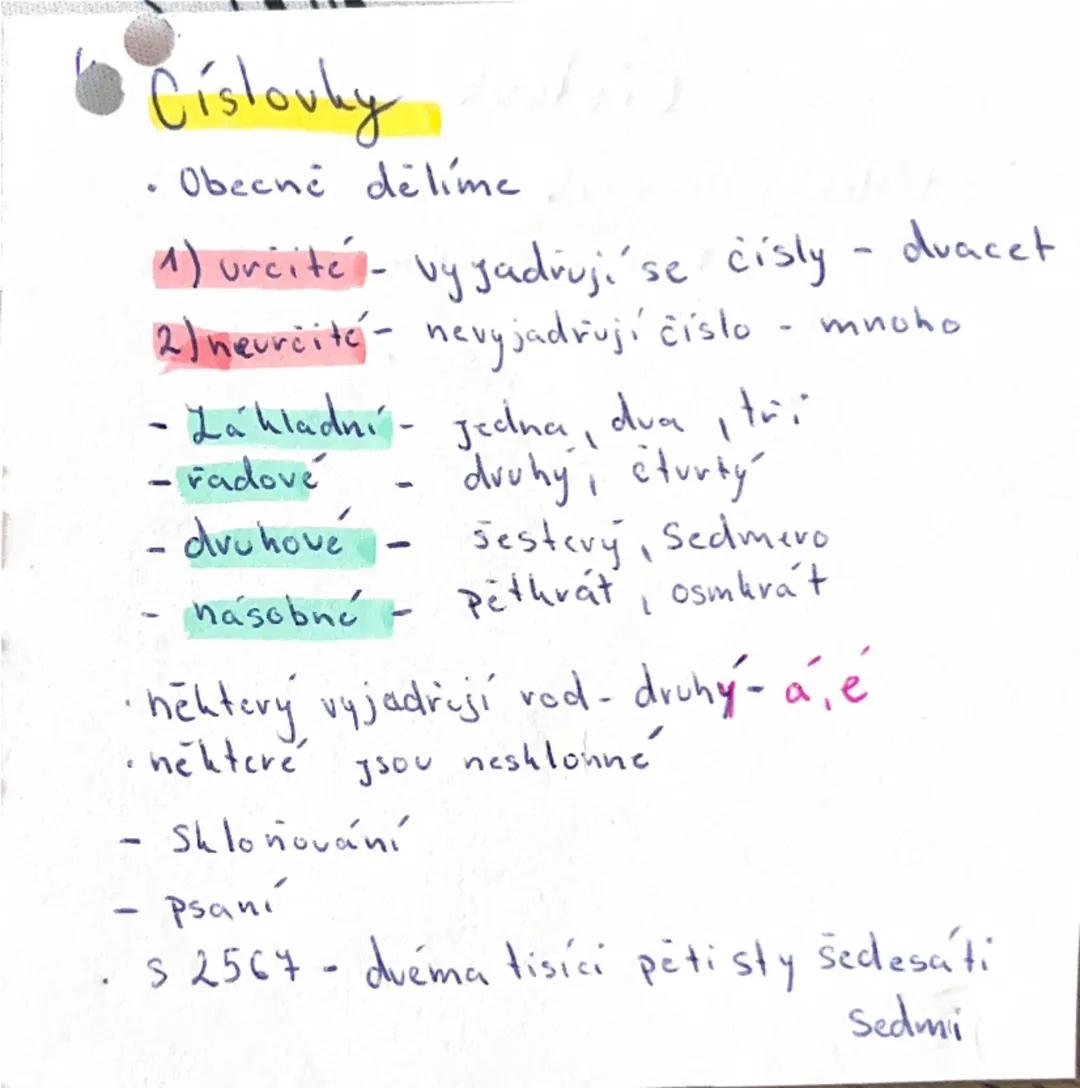 Číslovky
· Obecně dělíme
1) určité - vyjadřují se čísly - dvacet
2) neurčité - nevyjadřují číslo - mnoho
- základní - jedna, dva, tři
- řadové - druhý, čtvrtý
- druhové - šesterý, sedmero
- násobné - pětkrát, osmkrát
· některý vyjadřují rod - druhý - á, é
· některé jsou nesklonné
- Skloňování
- psaní
· s 2567 - dvěma tisíci pěti sty šedesáti
sedmi